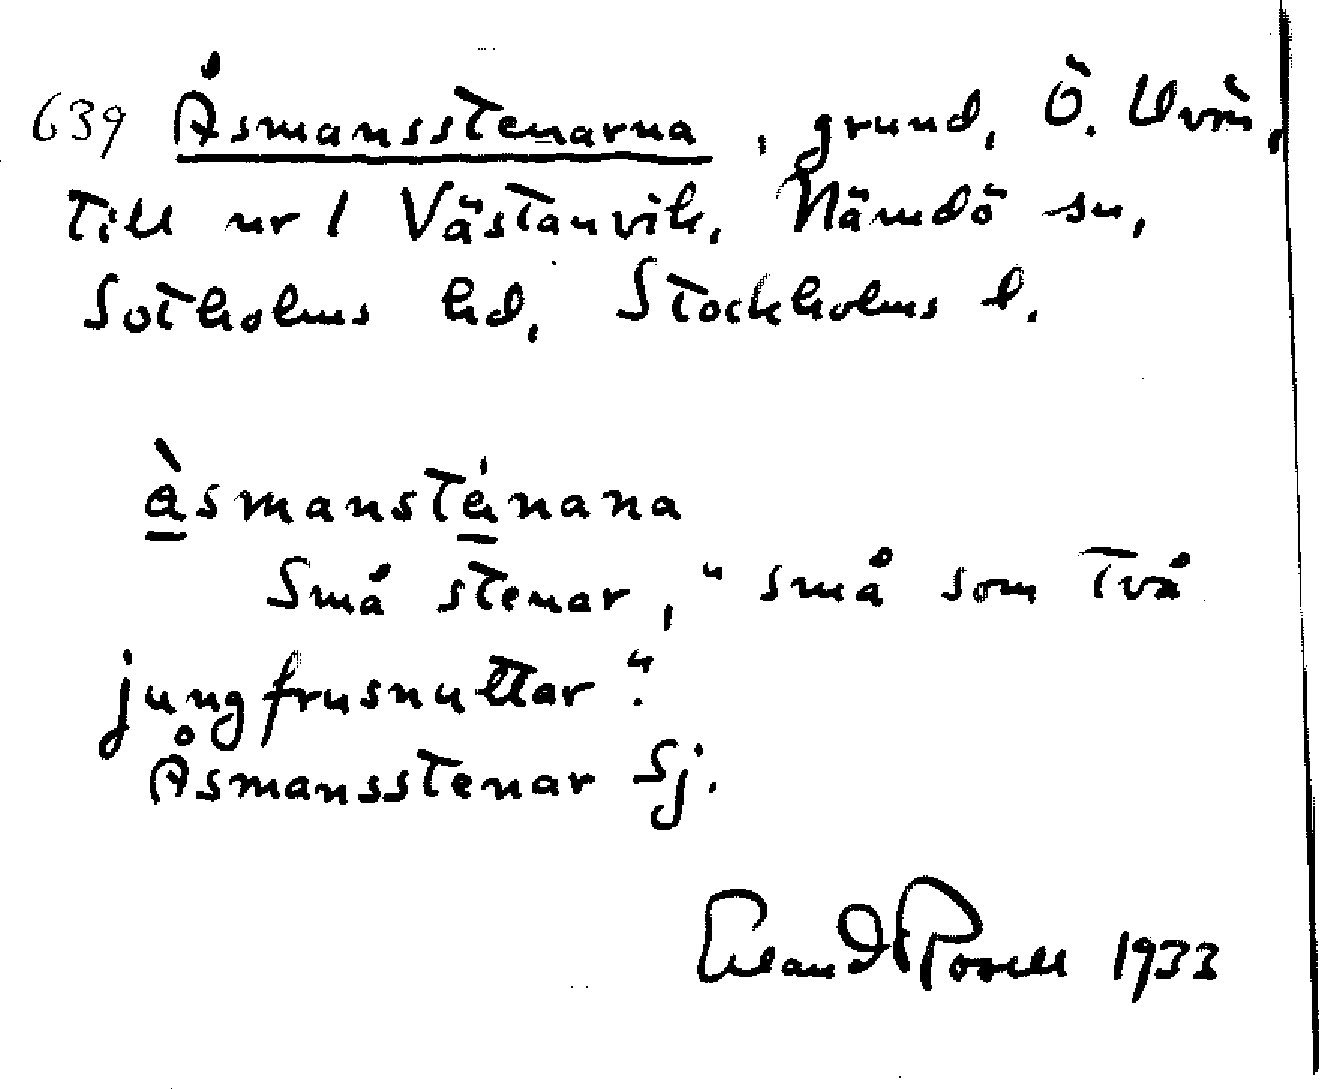 639 Åsmansstenarna, grund, Ö. Uvön,
till nr 1 Västanvik, Nämdö sn,
Sotholms hd, Stockholms l.
å̀smansté̱nana
Små stenar, "små som två
jungfrusnuttar".
Åsmansstenar Sj.
Erland Rosell 1933